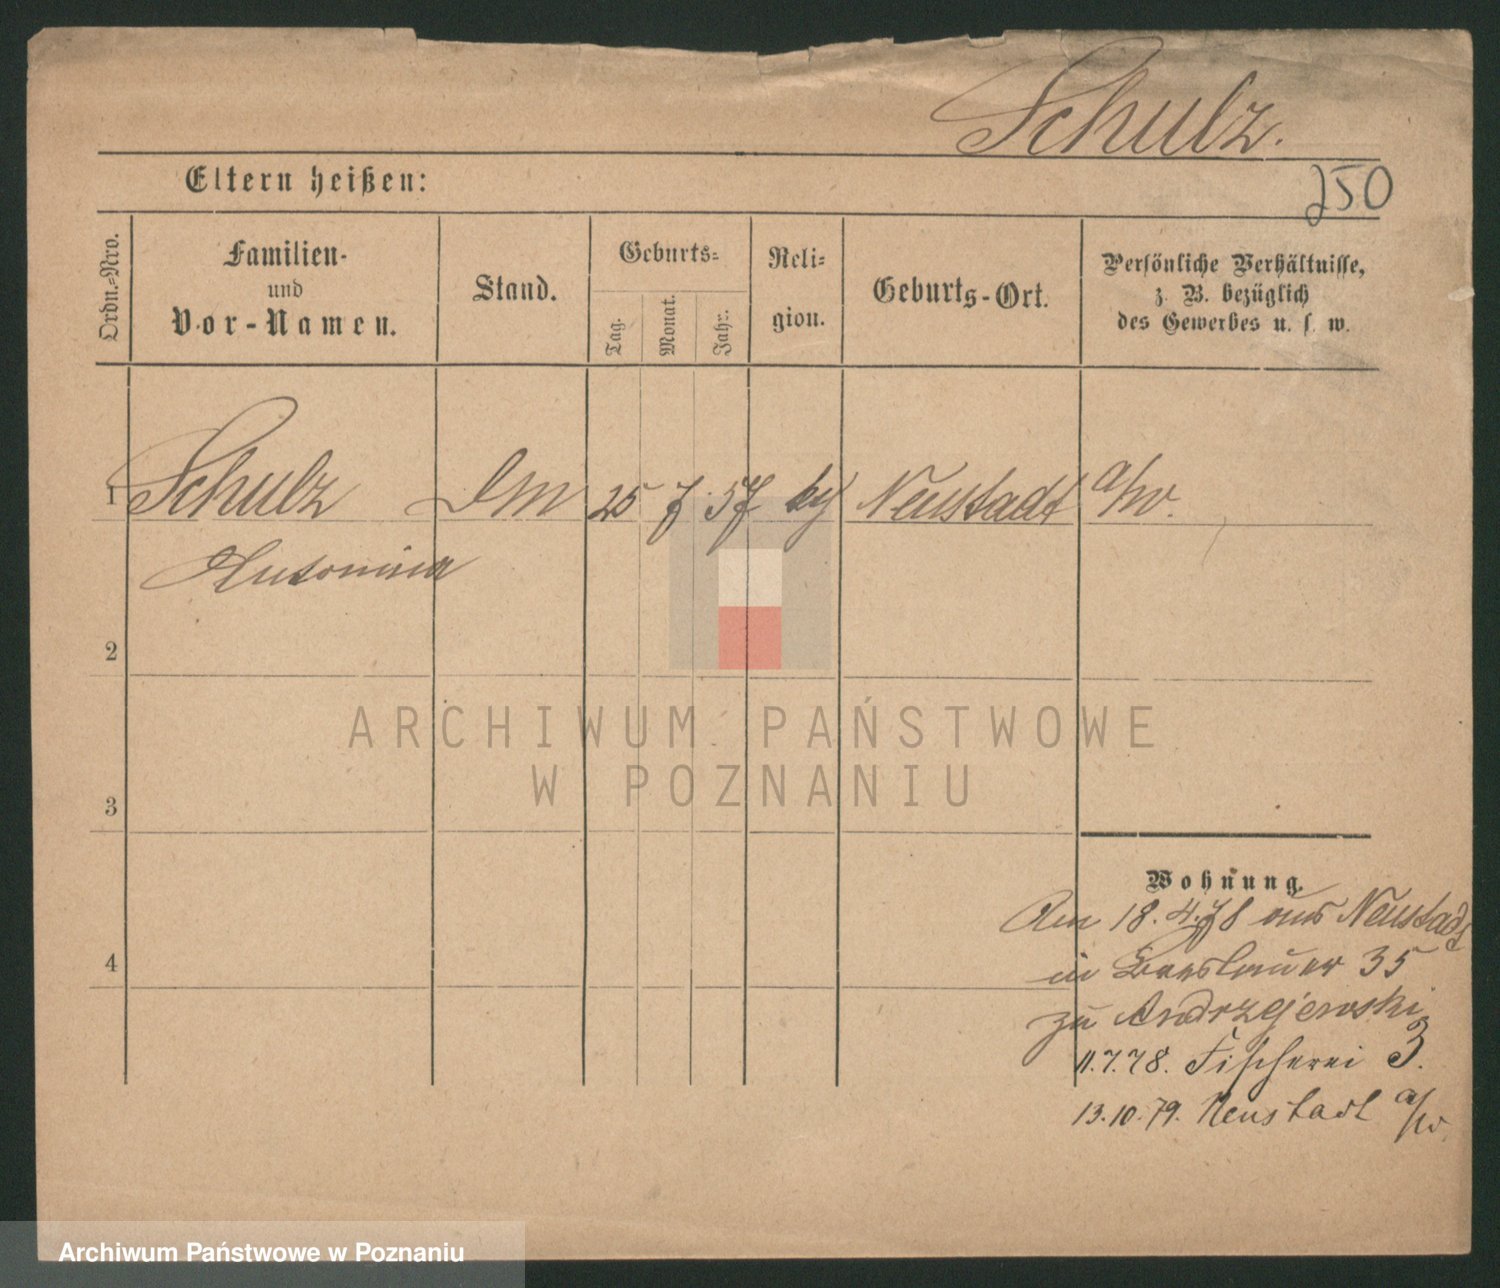 Schulz.
250
Eltern heißen:
Ordn.-Nro.
Familien-
und
Vor-Namen.
Stand.
Geburts-
Tag.
Monat.
Jahr.
Reli-
gion.
Geburts-Ort.
Persönliche Verhältnisse,
z. B. bezüglich
des Gewerbes u. s. w.
1 Schulz DM 25 7 57 Neustadt a/W.
Antonina
2
3
4
ARCHIWUM PAŃSTWOWE
W POZNANIU
Wohnung.
Am 18.4.78 aus Neustadt
in Breslauer 35
zu Andrzejewski
11.7.78. Fischerei 3.
13.10.79. Neustadt a/W
Archiwum Państwowe w Poznaniu